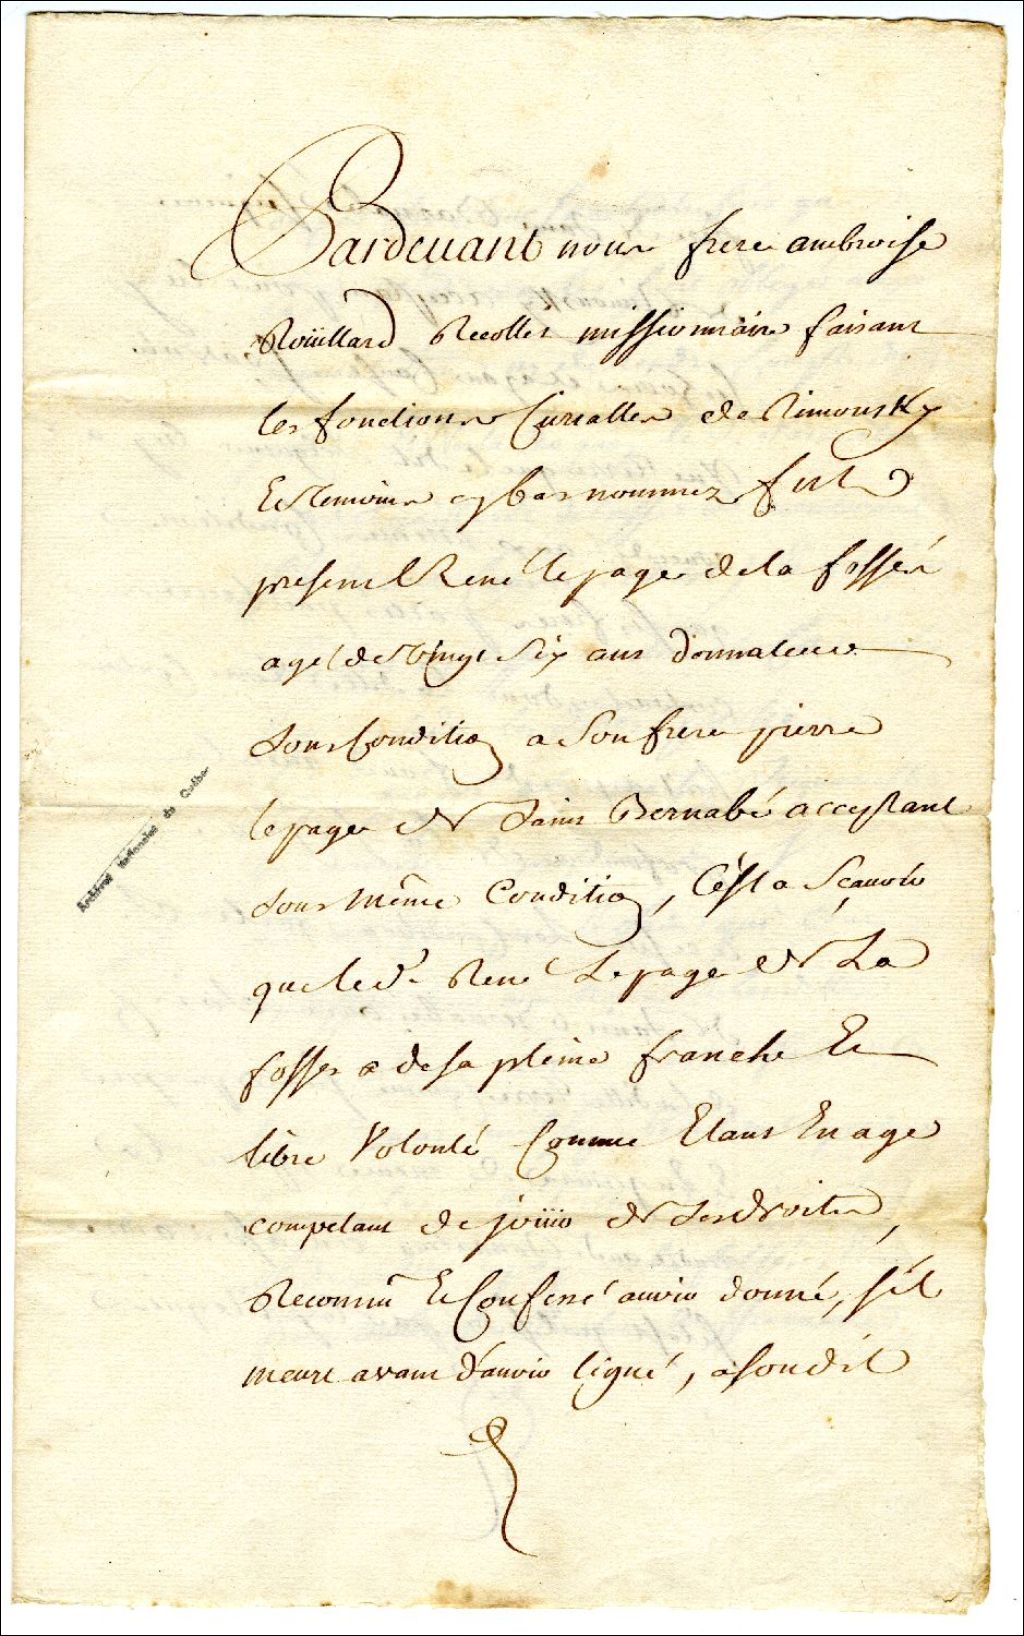 Pardevant nous frere ambroise
Roüillard Recollet missionnaire faisant
les fonctions Curialles de Rimousky
Et temoins cy bas nommez fut
present René lepage de la fossés
agé de vingt six ans donnateur
sous Condition a son frere pierre
lepage de Saint Bernabé acceptant
sous même Condition, C'est a Sçavoir
que led.t René Lepage de La
fosses a de sa pleine franche Et
libre Volonté Comme Etant En age
competant de joüir de ses droits,
Reconnû Et Confessé avoir donné, s'il
meurt avant d'avoir ligné, a son dit
Archives Nationales du Québec